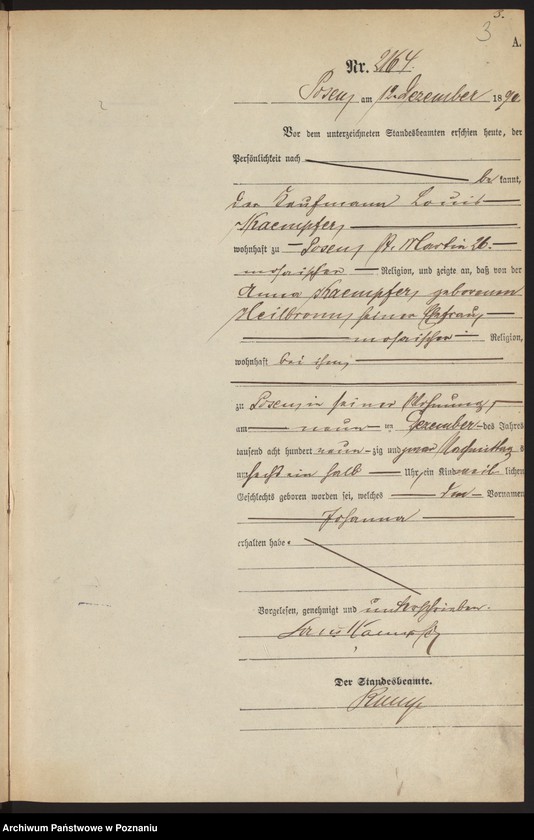 3.
3
A.
Nr. 2164.
Posen, am 12. Dezember 1890.
Vor dem unterzeichneten Standesbeamten erschien heute, der
Persönlichkeit nach
be kannt,
der Kaufmann Louis
Kaempfer,
wohnhaft zu Posen, St. Martin 26.
mosaischer Religion, und zeigte an, daß von der
Anna Kaempfer, geborenen
Heilbronn, seiner Ehefrau,
mosaischer Religion,
wohnhaft bei ihm,
zu Posen in seiner Wohnung,
am neun ten Dezember des Jahres
tausend acht hundert neun zig und zwar Nachmittag s
um sechs ein halb Uhr, ein Kind weib lichen
Geschlechts geboren worden sei, welches den Vornamen
Johanna
erhalten habe.
Vorgelesen, genehmigt und unterschrieben.
Louis Kaempfer
Der Standesbeamte.
Archiwum Państwowe w Poznaniu